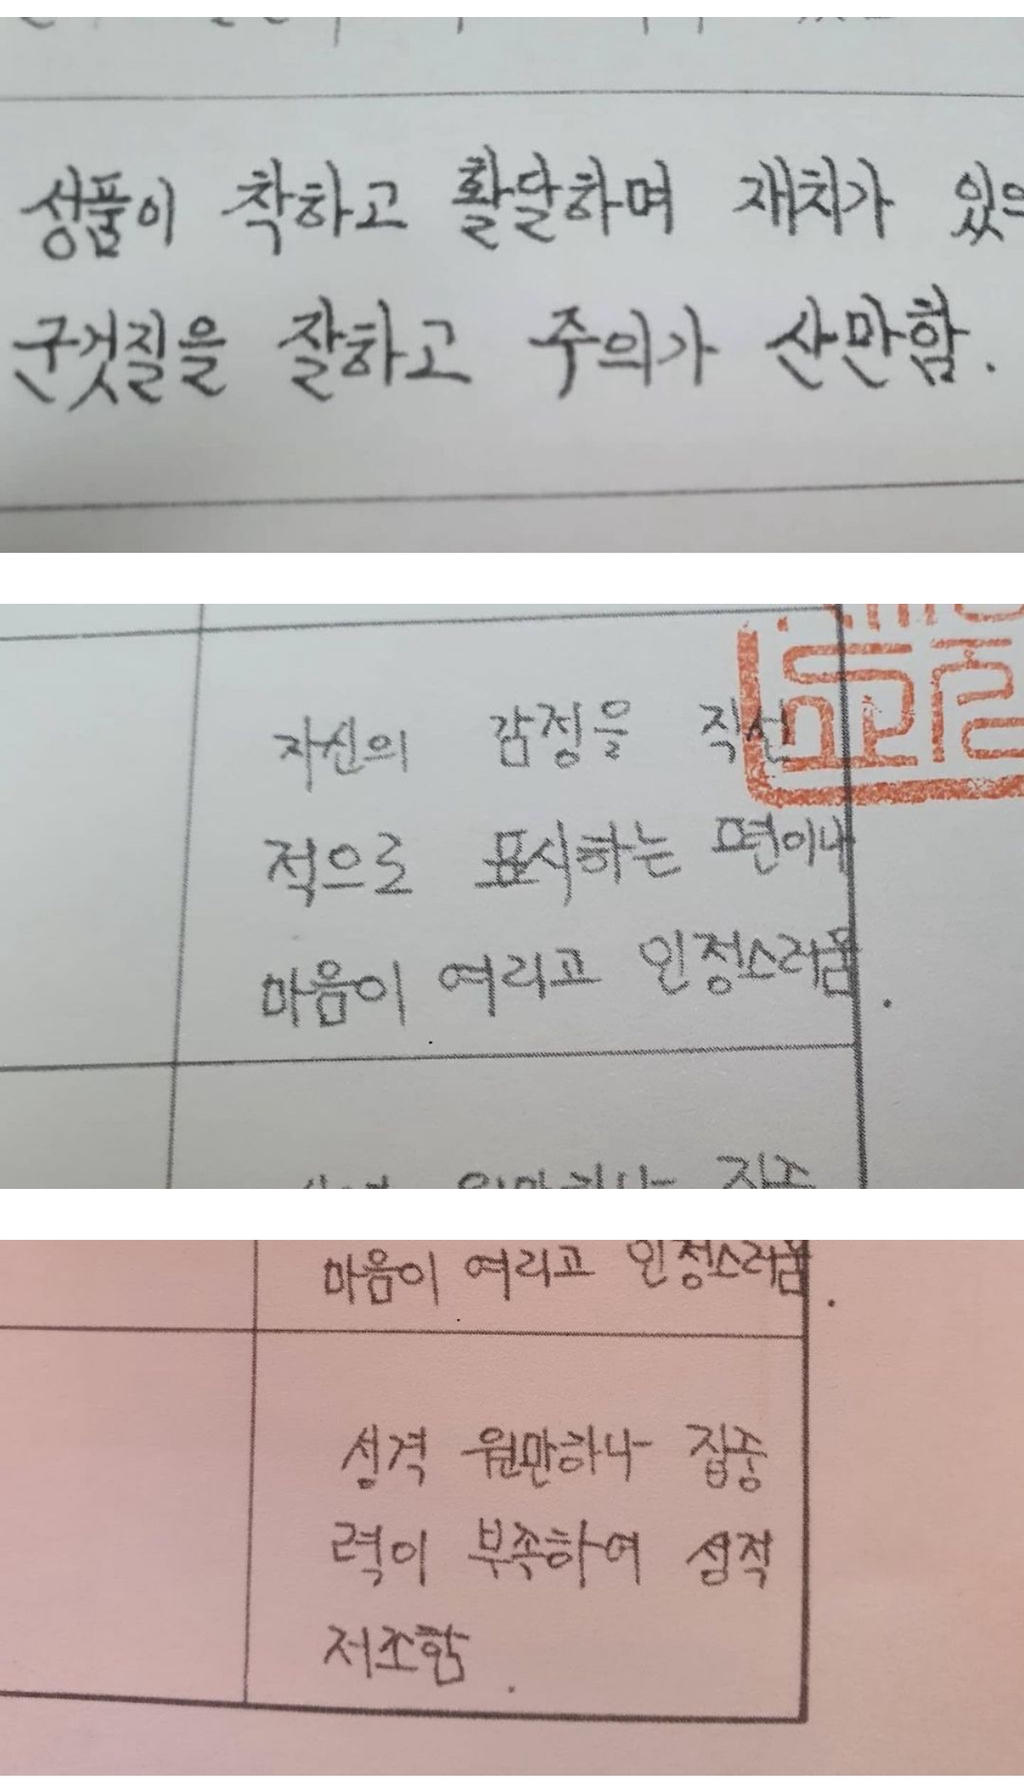 성품이 착하고 활달하며 재치가 있으
군것질을 잘하고 주의가 산만함.
자신의 감정을 직선
적으로 표시하는 편이나
마음이 여리고 인정스러움.
마음이 여리고 인정스러움.
성격 원만하나 집중
력이 부족하여 성적
저조함.